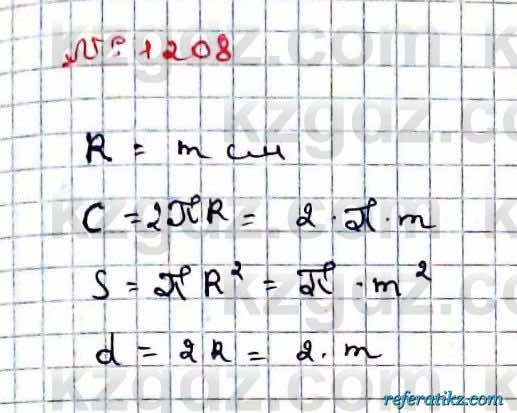 № 1208
R = m см
C = 2πR = 2 · π · m
S = πR² = π · m²
d = 2R = 2 · m
referatikz.com